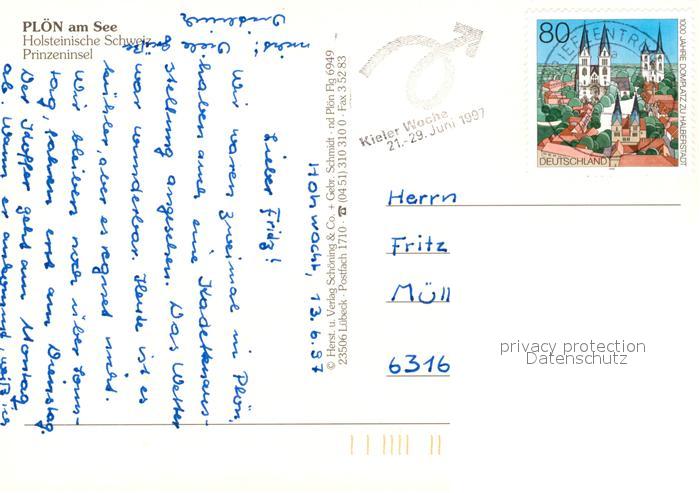 PLÖN am See
Holsteinische Schweiz
Prinzeninsel
Hohwacht, 13.6.97
Lieber Fritz!
Wir waren zweimal in Plön,
haben auch eine Kadettenaus-
stellung angesehen. Das Wetter
war wunderbar. Heute ist es
kühler, aber es regnet nicht.
Wir bleiben noch über Sonn-
tag, fahren erst am Dienstag.
Der Koffer geht am Montag
ab. Wann er ankommt, weiß ich
© Herst. u. Verlag Schöning & Co. + Gebr. Schmidt · nd Plön Flg 6949
23506 Lübeck · Postfach 1710 · ☎ (04 51) 310 310 0 · Fax 3 52 83
Kieler Woche
21.-29. Juni 1997
80
DEUTSCHLAND
1000 JAHRE DOMPLATZ ZU HALBERSTADT
Herrn
Fritz
Müll
6316
privacy protection
Datenschutz